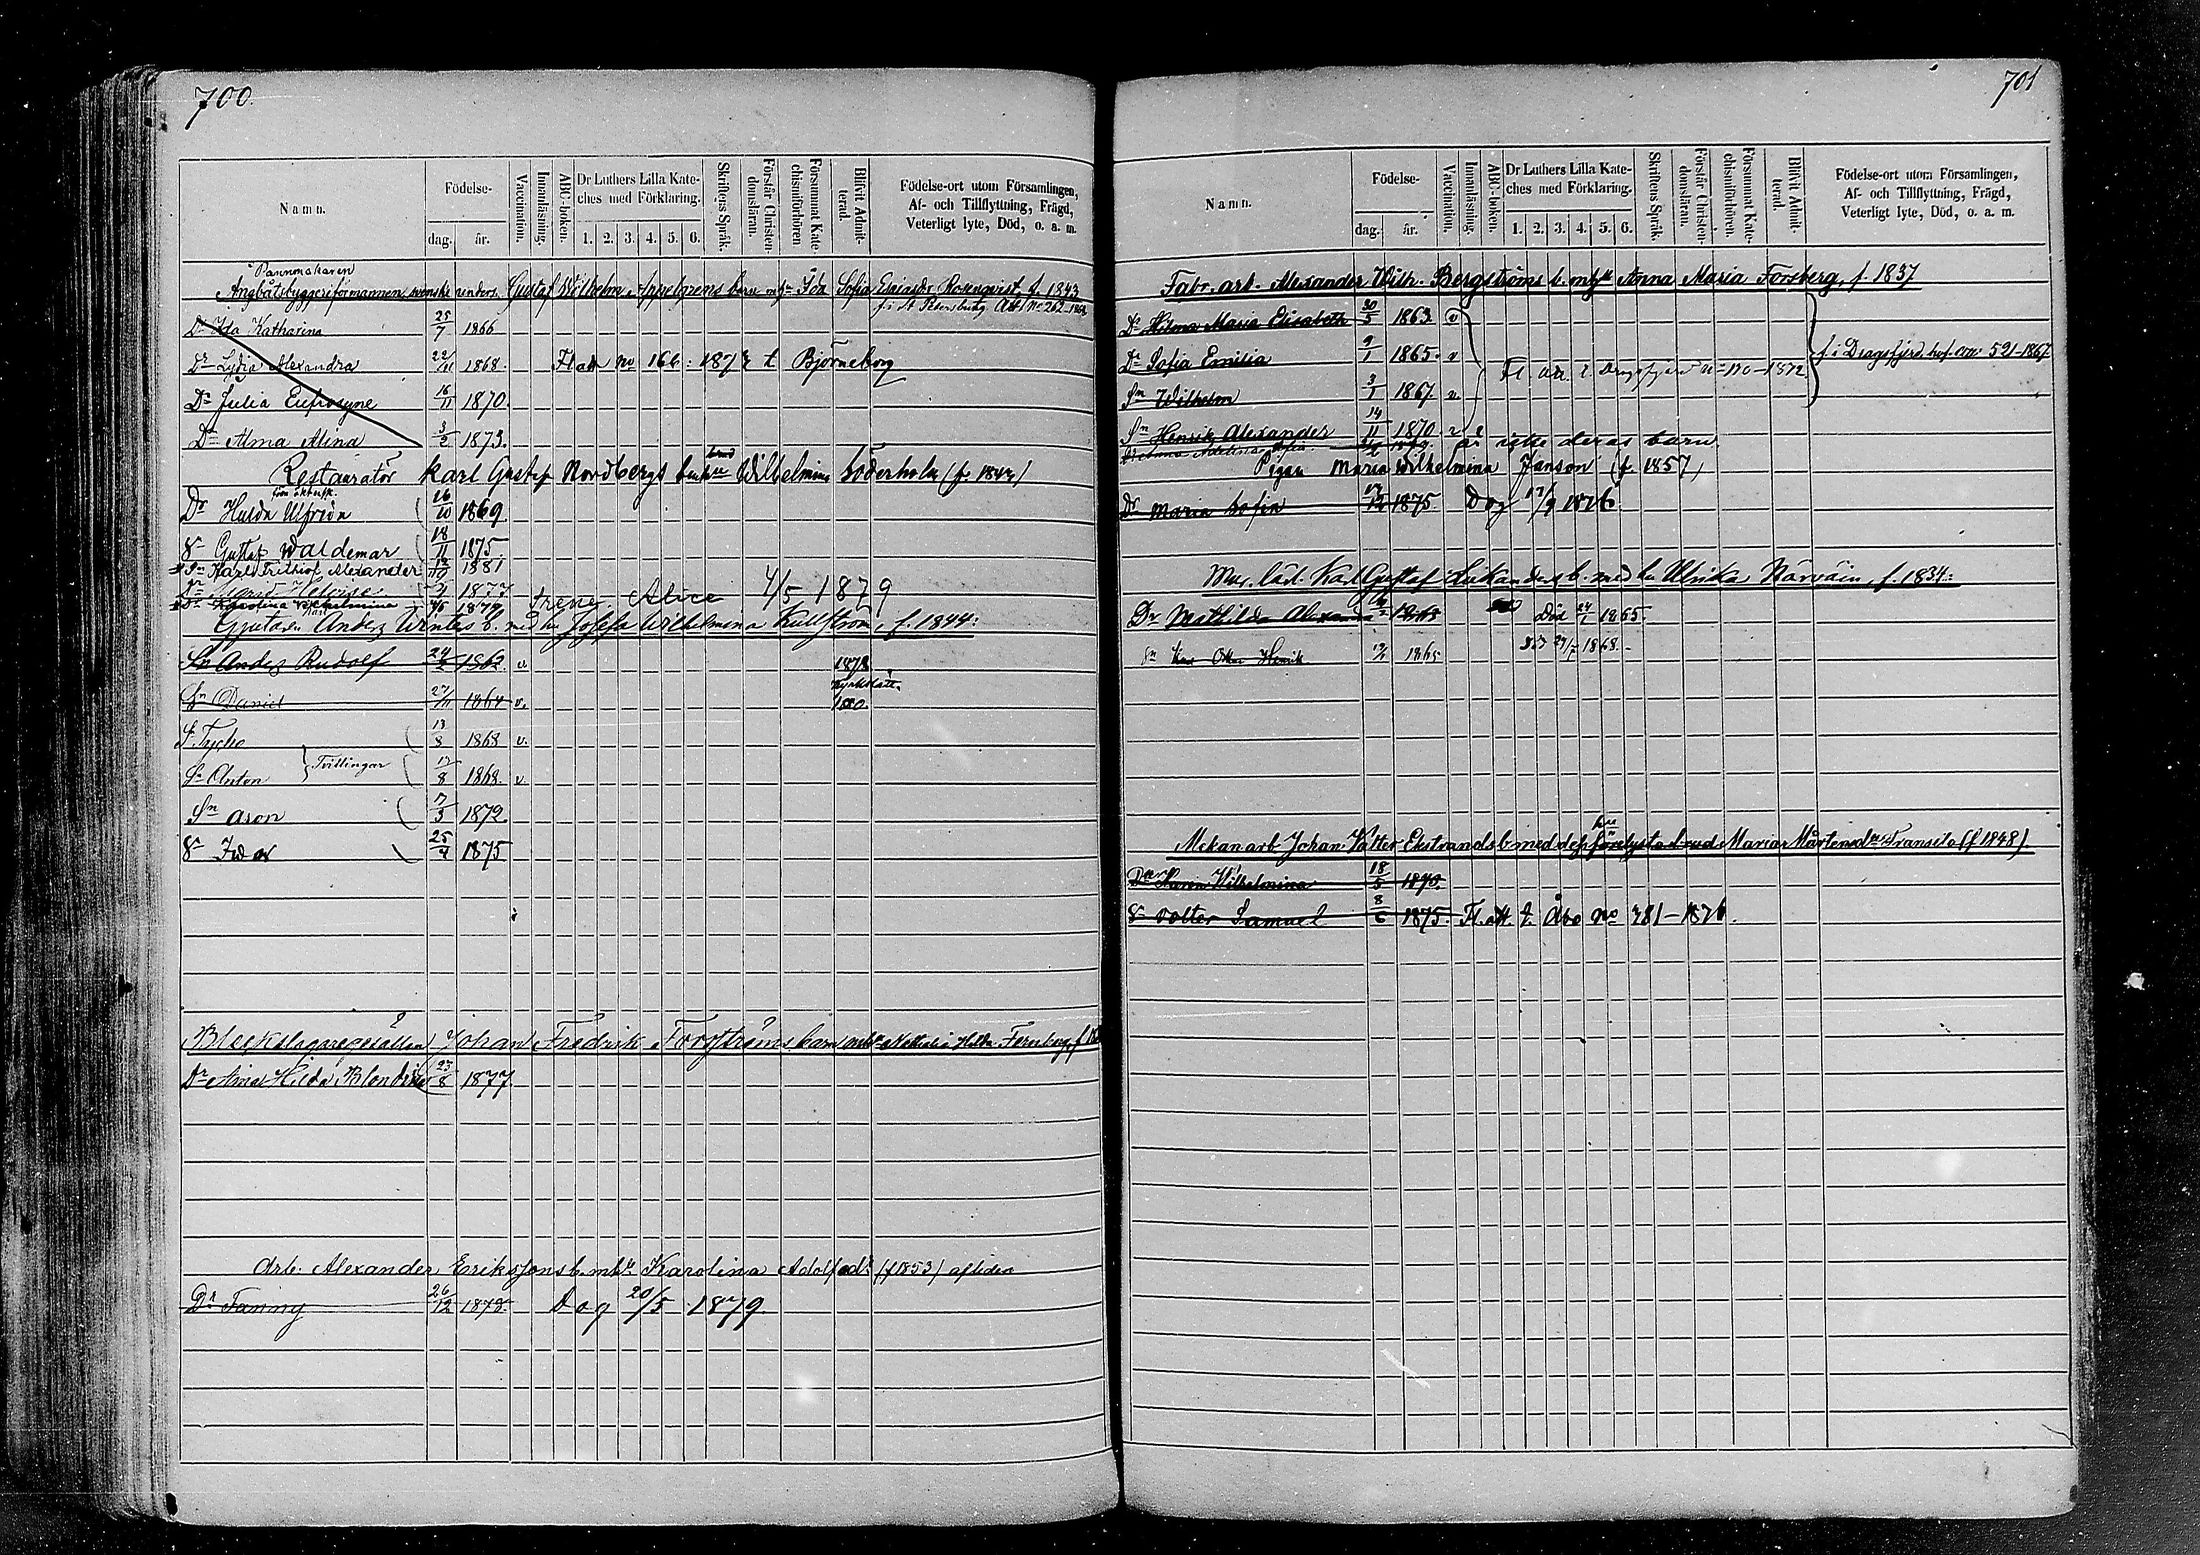 700.
Namn.
Födelse-
dag.
år.
Vaccination.
Innanläsning.
ABC-boken.
Dr Luthers Lilla Kate-
ches med Förklaring.
1. 2. 3. 4. 5. 6.
Skriftens Språk.
Förstår Christen-
domsläran.
Försummat Kate-
chismiförhören
Blifvit Admit-
terad.
Födelse-ort utom Församlingen,
Af- och Tillflyttning, Frägd,
Veterligt lyte, Död, o. a. m.
Pannmakaren
Ångbåtsbyggeriförmannen, svenske unders. Gustaf Wilhelm Appelgrens barn m h:n Ida Sofia Rosenqvist, f. 1843
f. i St Petersburg. Att. No 262
Dr Ida Katharina 25/7 1866
Dr Lydia Alexandra 22/11 1868. Fl att No 166: 1873 t Björneborg
Dr Julia Eufrosyne 16/11 1870.
Dr Alma Alina 3/2 1873.
Restauratör Karl Gustaf Nordbergs Wilhelmina Söderholm (f. 1844)
Dr Hulda Alfrida 26/10 1869
Sn Gustaf Waldemar 18/11 1875
Sn Karl Frithiof Alexander 12/10 1881
1877
Irene Alice 4/5 1879
Karolina Wilhelmina 1879
Gjutaren Anders Wintes b. med hu Josefa Wilhelmina Kullström, f. 1844:
Sn Anders Rudolf 1862 v. 1878
Kyrkslätt.
Sn Daniel 27/11 1864 v. 1880.
S. Tycho 13/8 1868 v.
Tvillingar
Sn Anton 13/8 1868. v
Sn Aron 7/3 1872.
S Ivar 25/4 1875
Bleckslagaregesällen Johan Fredrik Forsströms barn mhu Nathalia Hilda Fernberg, f
Dr Aina Hilda Blondina 23/8 1877
Arb. Alexander Erikssons b. mhu Karolina Adolfsdr (f 1853) afliden
Dr Fanny 26/12 1878. Dog 20/5 1879
701
Namn.
Födelse-
dag.
år.
Vaccination.
Innanläsning.
ABC-boken.
Dr Luthers Lilla Kate-
ches med Förklaring.
1. 2. 3. 4. 5. 6.
Skriftens Språk.
Förstår Christen-
domsläran.
Försummat Kate-
chismiförhören.
Blifvit Admit-
terad.
Födelse-ort utom Församlingen,
Af- och Tillflyttning, Frägd,
Veterligt lyte, Död, o. a. m.
Fabr. arb. Alexander Wilh. Bergströms b. m hu Anna Maria Forsberg, f. 1837
Dr Hilma Maria Elisabeth 30/5 1863 v
Dr Sofia Emilia 9/1 1865. v
f. i Dragsfjerd, 521-1867
Fl. att. t. Dragsfjerd No 170-1872
Sn Wilhelm 3/1 1867. v
Sn Henrik Alexander 14/11 1870. v
Adelina Sofia är icke deras barn
Pigan Maria Wilhelmina Janson (f. 1857)
Dr Maria Sofia 17/12 1875 Dog 17/9 1876
Mur. lärl. Karl Gustaf Lukanders b. med hu Ulrika Närväin, f. 1834:
Dr Mathilda Alexandra 1863 Död 24/1 1865.
Sn Karl Oskar Henrik 1865 Död 29/7 1868.
hu
Mekanarb Johan Valter Ekstrands b med dess förelystad brud Maria Mårtensdr Fransila (f 1848)
Dr Karin Wilhelmina 18/5 1870.
S Volter Samuel 8/6 1875. Fl. att. t. Åbo No 781-1876.